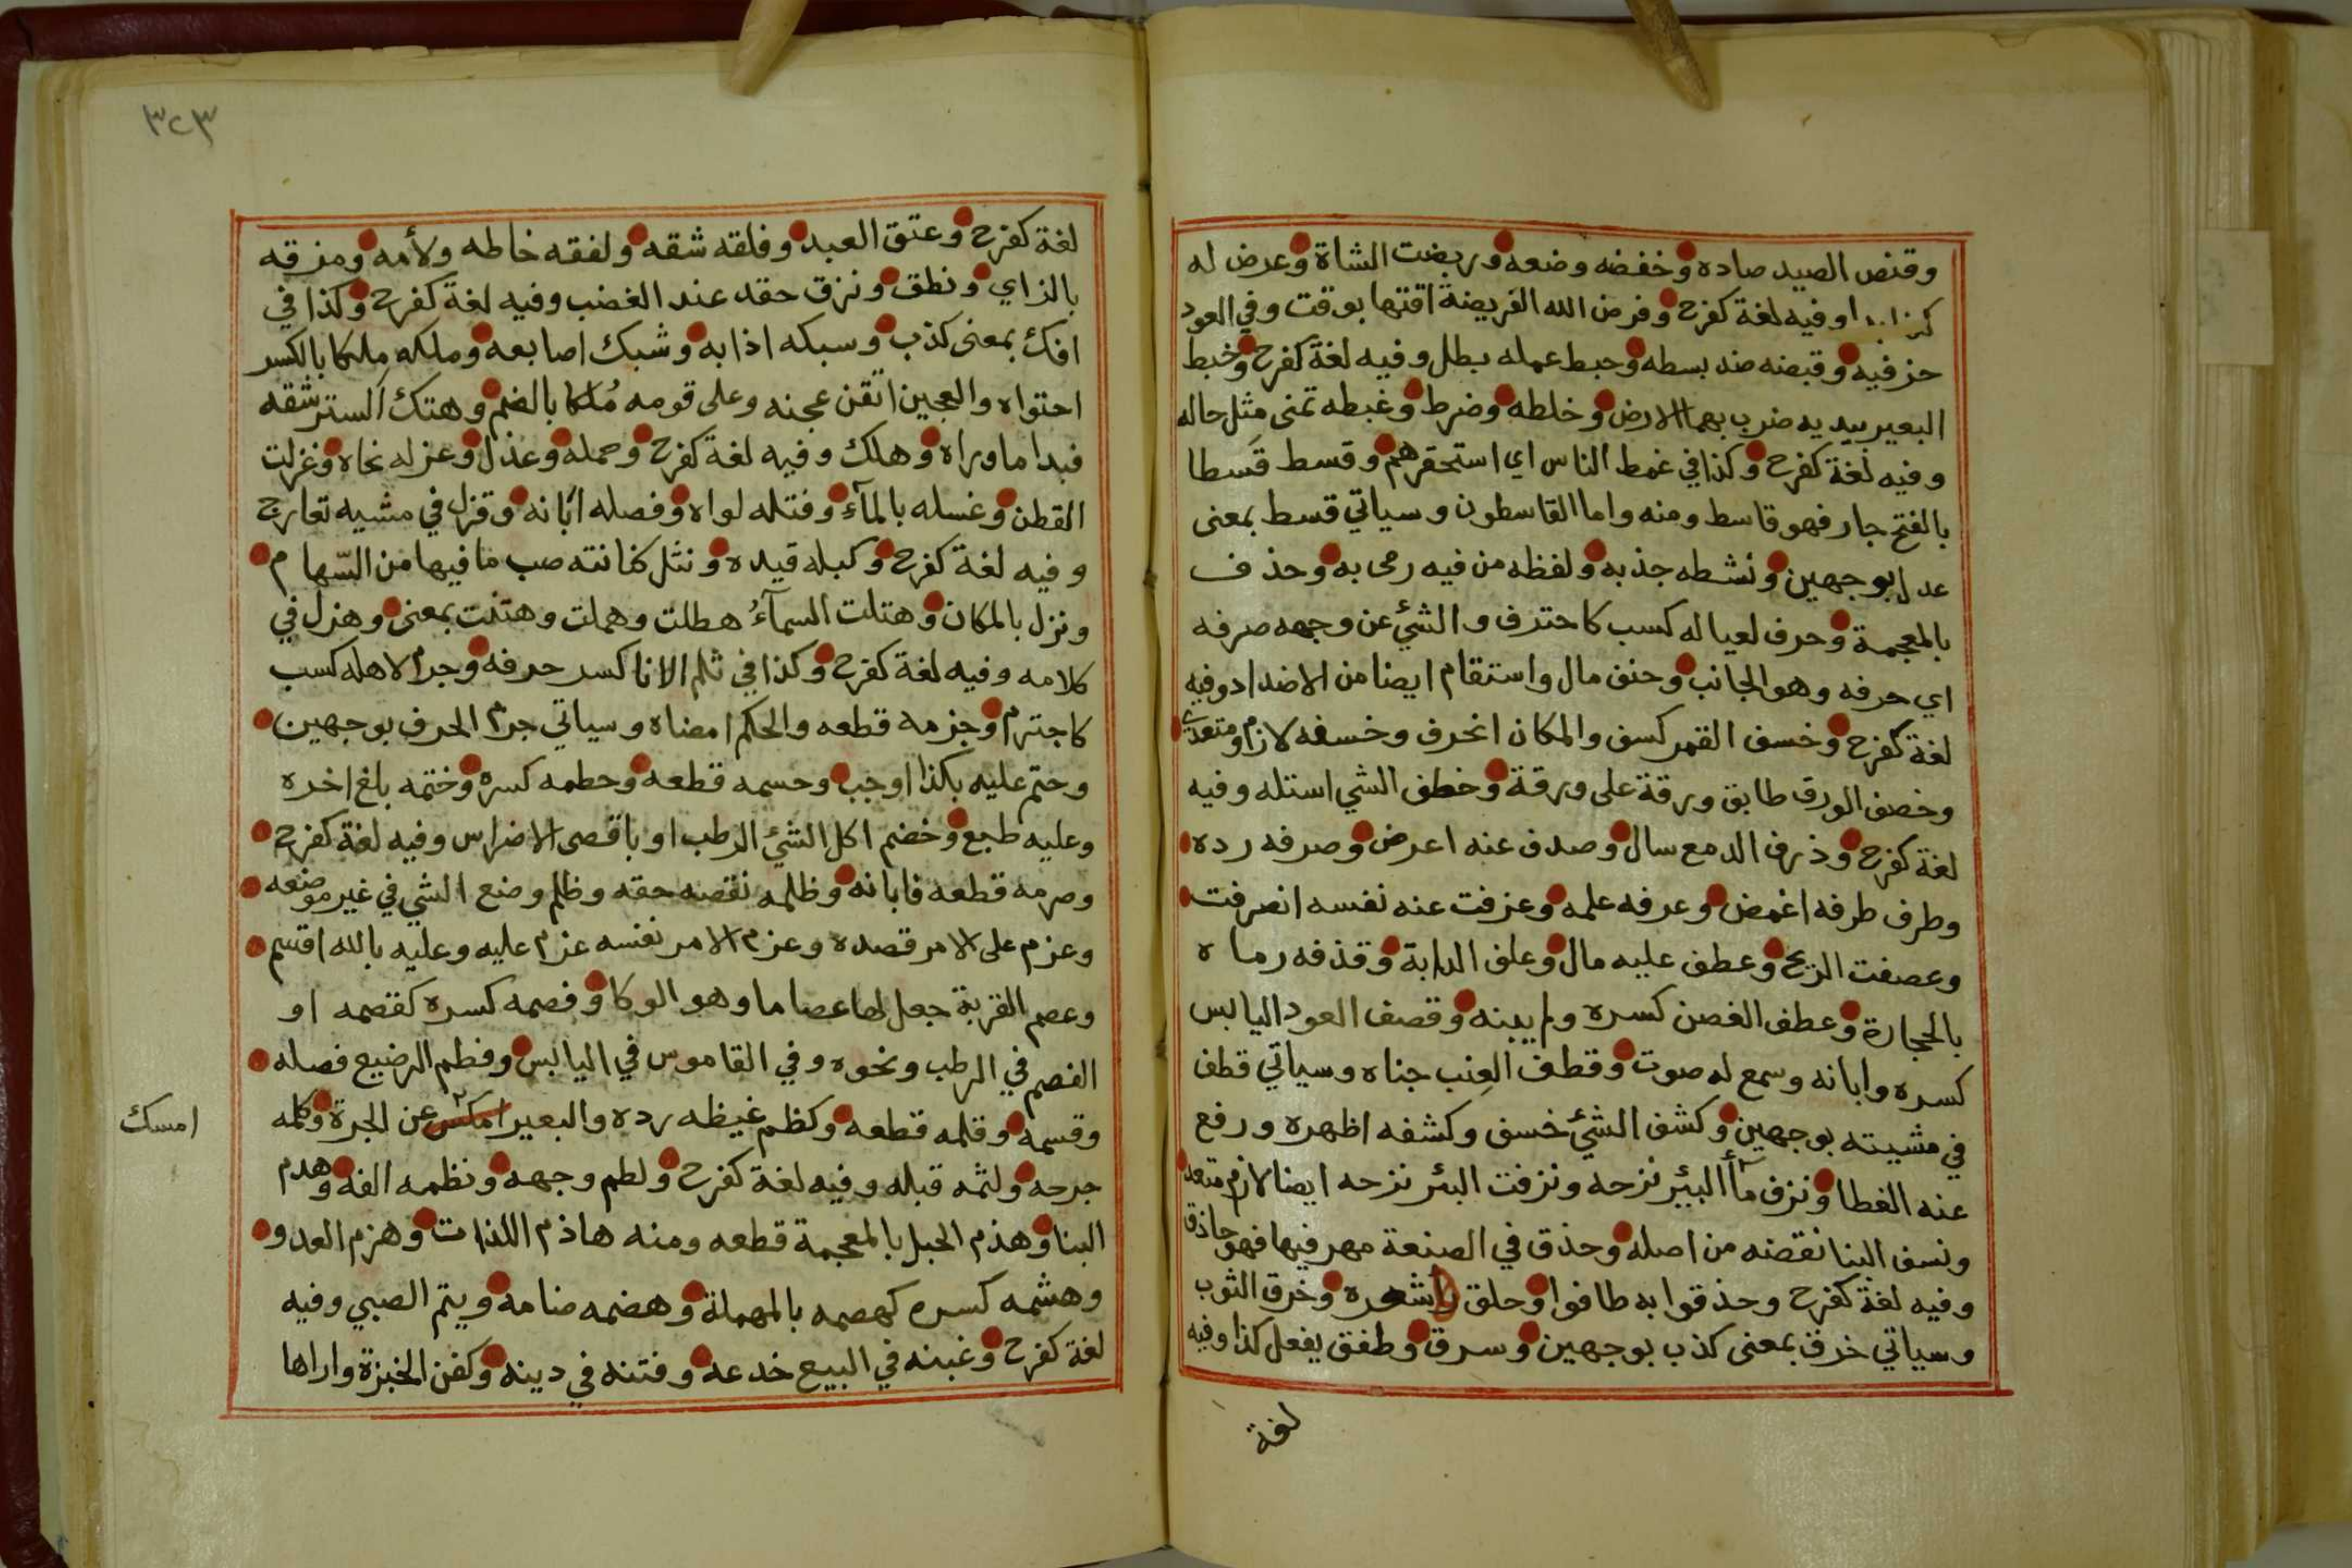 وقنص الصيد صاده وخفضه وضعه وربضت الشاة وعرض له
كذا بدا وفيه لغة كفرح وفرض الله الفريضة اقتها بوقت وفي العود
حز فيه وقبضه ضد بسطه وحبط عمله بطل وفيه لغة كفرح وخبط
البعير بيديه ضرب بهما الارض وخلطه وضرط وغبطه تمنى مثل حاله
وفيه لغة كفرح وكذا في غمط الناس اي استحقرهم وقسط قسطا
بالفتح جار فهو قاسط ومنه واما القاسطون وسياتي قسط بمعنى
عدل بوجهين ونشطه جذبه ولفظه من فيه رمى به وحذف
بالمعجمة وحرف لعياله كسب كاحترف والشيء عن وجهه صرفه
اي حرفه وهو الجانب وحنف مال واستقام ايضا من الاضداد وفيه
لغة كفرح وخسف القمر كسف والمكان انخرف وخسفه لازم ومتعدي
وخصف الورق طابق ورقة على ورقة وخطف الشي استله وفيه
لغة كفرح وذرف الدمع سال وصدف عنه اعرض وصرفه رده
وطرف طرفه اغمض وعرفه علمه وعزفت عنه نفسه انصرفت
وعصفت الريح وعطف عليه مال وعلف الدابة وقذفه رماه
بالحجارة وعطف الغصن كسره ولم يبنه وقصف العود اليابس
كسره وابانه وسمع له صوت وقطف العنب جناه وسياتي قطف
في مشيته بوجهين وكشف الشيء خسف وكشفه اظهره ورفع
عنه الغطا ونزف مآ البئر نزحه ونزفت البئر نزحه ايضا لازم متعد
ونسف البنا نقضه من اصله وحذق في الصنعة مهر فيها فهو حاذق
وفيه لغة كفرح وحذقوا به طافوا وحلق شعره وخرق الثوب
وسياتي خرق بمعنى كذب بوجهين وسرق وطفق يفعل كذا وفيه
لغة
٣٢٣
لغة كفرح وعتق العبد وفلقه شقه ولفقه خاطه ولأمه ومزقه
بالزاي ونطق ونزق حقد عند الغضب وفيه لغة كفرح وكذا في
افك بمعنى كذب وسبكه اذابه وشبك اصابعه وملكه ملكا بالكسر
احتواه والعجين اتقن عجنه وعلى قومه مُلكا بالضم وهتك الستر شقه
فبدا ما وراه وهلك وفيه لغة كفرح وحمله وعذل وعزله نحاه وغزلت
القطن وغسله بالمآء وفتله لواه وفصله ابانه وقزل في مشيه تعارج
وفيه لغة كفرح وكبله قيده ونثل كنانته صب ما فيها من السّهام
ونزل بالمكان وهتلت السمآءُ هطلت وهملت وهتنت بمعنى وهزل في
كلامه وفيه لغة كفرح وكذا في ثلم الانا كسر حرفه وجرم لاهله كسب
كاجترم وجزمه قطعه والحكم امضاه وسياتي جرم الحرف بوجهين
وحتم عليه بكذا اوجب وحسمه قطعه وحطمه كسره وختمه بلغ اخره
وعليه طبع وخضم اكل الشيء الرطب او باقصى الاضراس وفيه لغة كفرح
وصرمه قطعه فابانه وظلمه نقصه حقه وظلم وضع الشي في غير موضعه
وعزم على الامر قصده وعزم الامر نفسه عزم عليه وعليه بالله اقسم
وعصم القربة جعل لها عصاما وهو الوكا وفصمه كسره كقصمه او
الفصم في الرطب ونحوه وفي القاموس في اليابس وفطم الرضيع فصله
وقسمه وقلمه قطعه وكظم غيظه رده والبعير امكس عن الجرة وكلمه
امسك
جرحه ولثمه قبله وفيه لغة كفرح ولطم وجهه ونظمه الفه وهدم
البنا وهذم الحبل بالمعجمة قطعه ومنه هاذم اللذات وهزم العدو
وهشمه كسره كهصمه بالمهملة وهضمه ضامه ويتم الصبي وفيه
لغة كفرح وغبنه في البيع خدعه وفتنه في دينه وكفن الخبزة واراها